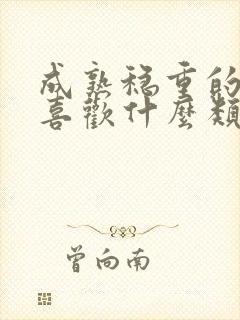 成熟穩重的
喜歡什麼類
曾向南